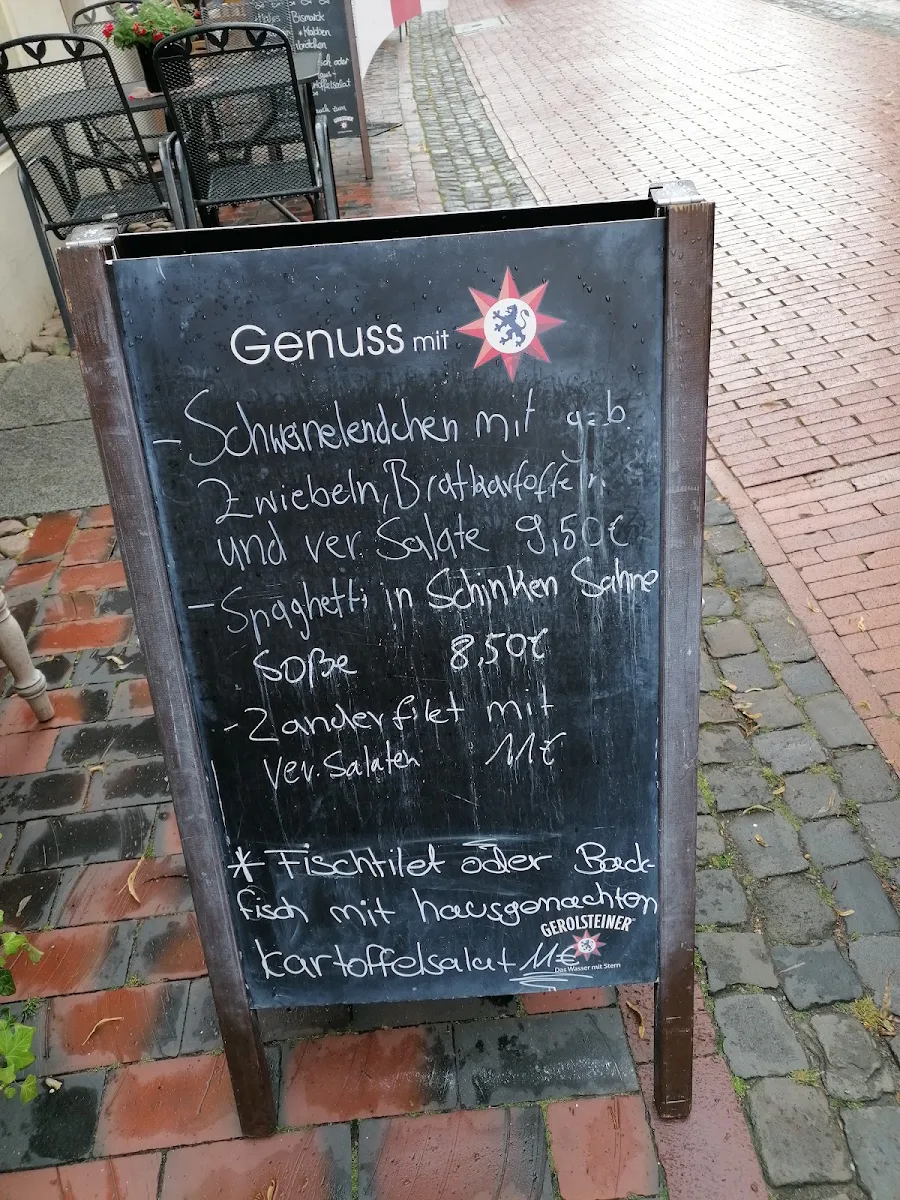 Bismarck
Genuss mit
- Schweinelendchen mit geb
Zwiebeln, Bratkartoffeln
und ver. Salate 9,50€
- Spaghetti in Schinken Sahne
Soße 8,50€
- Zanderfilet mit
ver. Salaten 11€
* Fischfilet oder Back-
fisch mit hausgemachten
GEROLSTEINER
Kartoffelsalat 11€
Das Wasser mit Stern